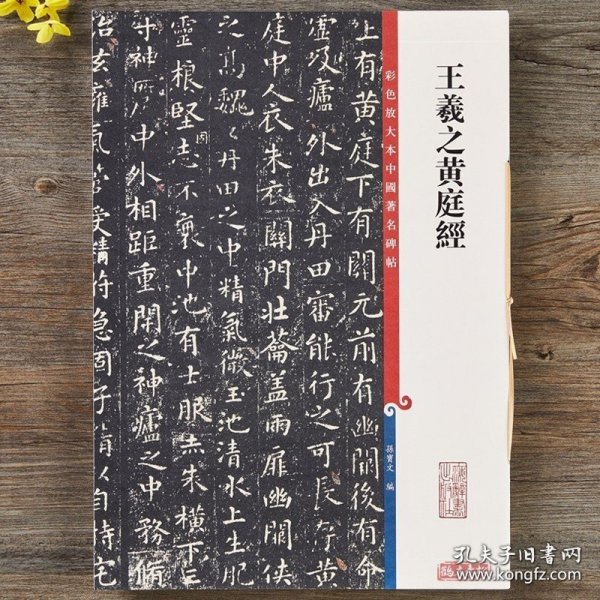 王羲之黄庭經
彩色放大本中國著名碑帖
孫寶文 編
上有黄庭下有關元前有幽闕後有命
嘘吸廬外出入丹田審能行之可長存黄
庭中人衣朱衣關門壯蘥蓋兩扉幽闕俠
之高魏〻丹田之中精氣微玉池清水上生肥
靈根堅志不衰中池有士服赤朱橫下三
寸神所居中外相距重閉之神廬之中務脩
治玄癕氣管受精符急固子精以自持宅
孔夫子旧書网
www.kongfz.com